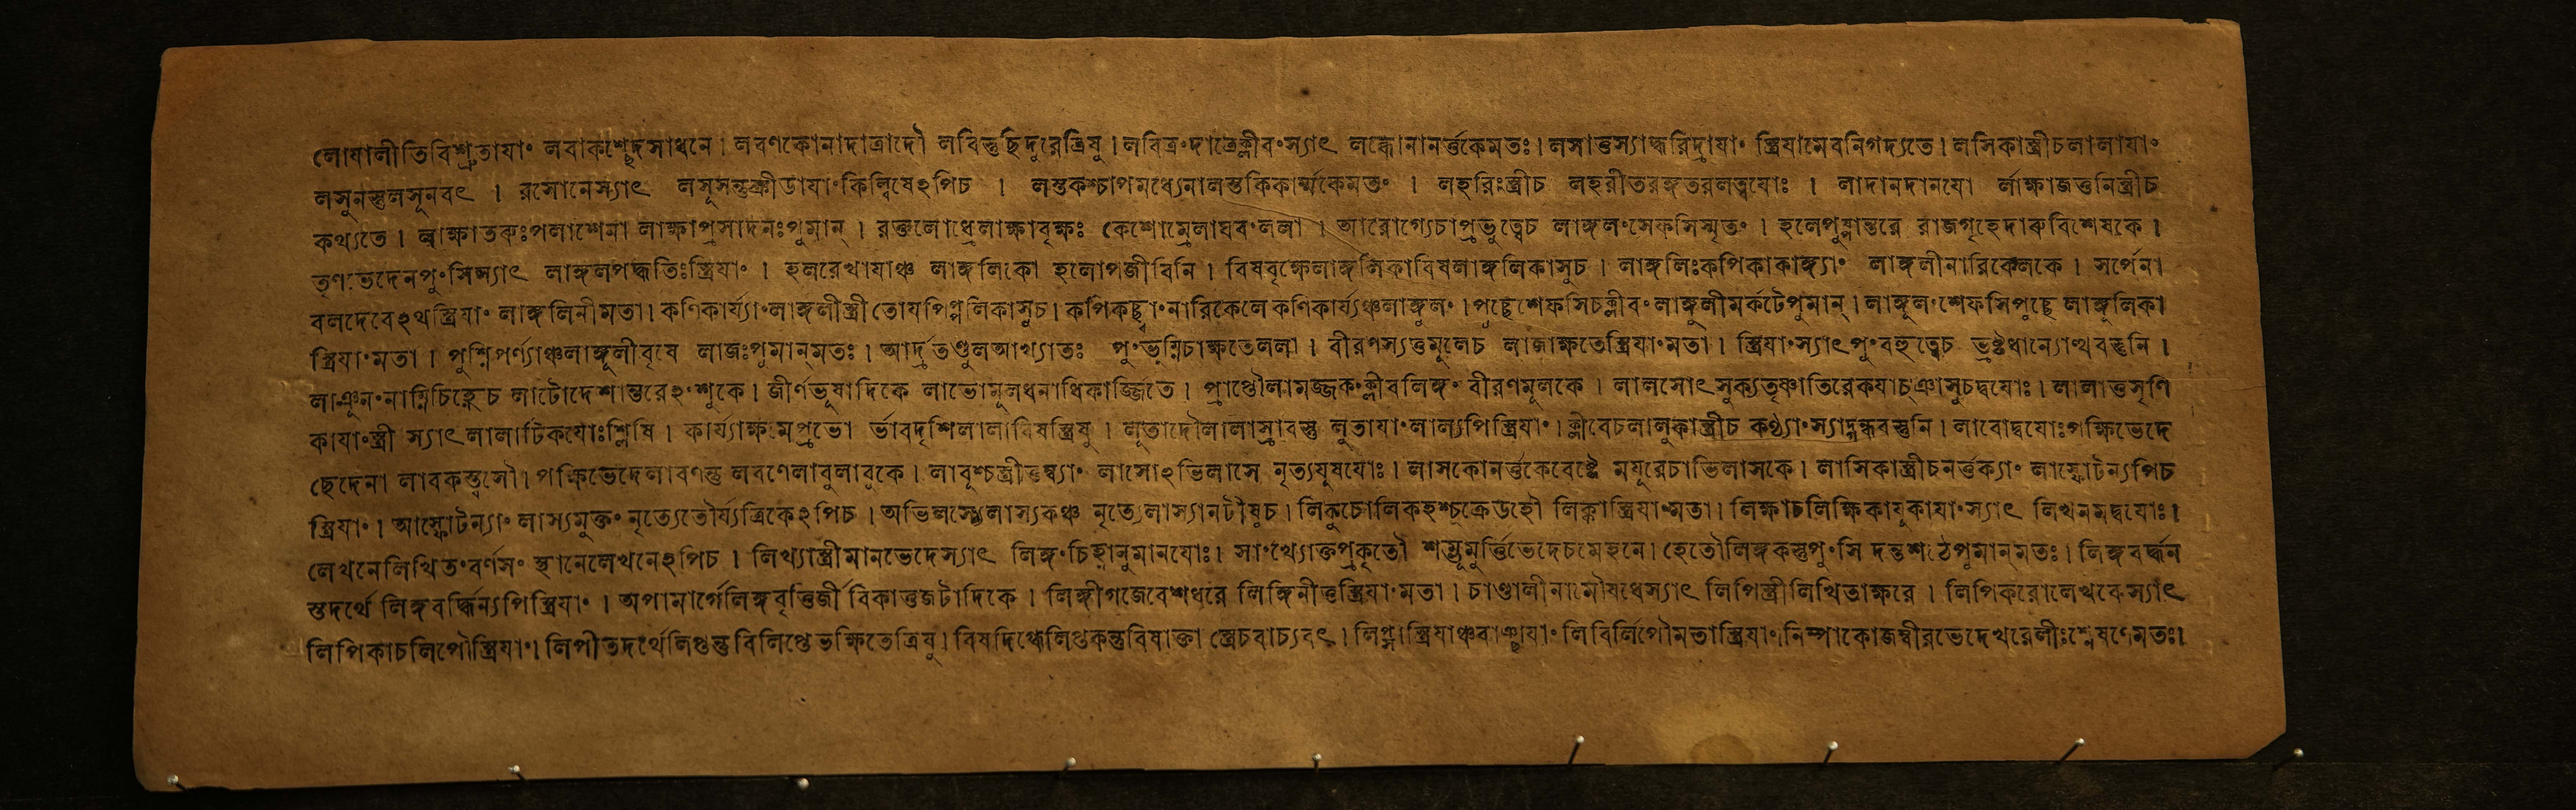 লোযালীতিবিশ্রুতাযাং লবাকশ্ছেদসাধনে । লবণকোনাদাত্রাদৌ লবিত্তুছিদুরেত্রিষু । লবিত্রং দাত্রেক্লীবংস্যাৎ লষ্বোনানর্ত্তকেমতঃ । লসাত্তস্যাদ্ধরিদ্রাযাং স্ত্রিযামেবনিগদ্যতে । লসিকাস্ত্রীচলালাযাং
লসুনস্তুলসূনবৎ । রসোনেস্যাৎ লসূসন্তুক্রীডাযাংকিল্বিষেঽপিচ । লস্তকশ্চাপমধ্যেনালস্তকিকার্ম্মকেমতং । লহরিঃস্ত্রীচ লহরীতরঙ্গতরলত্বযোঃ । লাদানদানযো র্লাক্ষাজত্তনিস্ত্রীচ
কথ্যতে । লাক্ষাতরুঃপলাশেনা লাক্ষাপ্রসাদনঃপুমান্ । রক্তলোধ্রেলাক্ষাবৃক্ষঃ কেশোম্রেলাঘবংললা । আরোগ্যেচাপ্রভুত্বেচ লাঙ্গলংসেফসিস্মৃতং । হলেপুষ্পান্তরে রাজগৃহেদারুবিশেষকে ।
তৃণভেদেনপুংসিস্যাৎ লাঙ্গলপদ্ধতিঃস্ত্রিযাং । হলরেখাযাঞ্চ লাঙ্গলিকো হলোপজীবিনি । বিষবৃক্ষেলাঙ্গলিকাবিষলাঙ্গলিকাসুচ । লাঙ্গলিঃকপিকাকাঙ্গ্যাং লাঙ্গলীনারিকেলকে । সর্পেনা
বলদেবেঽথস্ত্রিযাং লাঙ্গলিনীমতা । কণিকার্য্যাংলাঙ্গলীস্ত্রী তোযপিপ্পলিকাসুচ । কপিকচ্ছ্বাংনারিকেলে কণিকার্য্যঞ্চলাঙ্গুলং । পুচ্ছেশেফসিচক্লীবং লাঙ্গুলীমর্কটেপুমান্ । লাঙ্গূলংশেফসিপুচ্ছে লাঙ্গুলিকা
স্ত্রিযাংমতা । পৃশ্নিপর্ণ্যাঞ্চলাঙ্গূলীবৃষে লাজঃপুমান্‌মতঃ । আর্দ্রতণ্ডুলআখ্যাতঃ পুংভূম্নিচাক্ষতেললা । বীরণস্যত্তমূলেচ লাজাক্ষতেস্ত্রিযাংমতা । স্ত্রিযাংস্যাৎপুংবহুত্বেচ ভ্রষ্টধান্যোত্থবস্তুনি ।
লাঞ্ছনংনাম্নিচিহ্নেচ লাটোদেশান্তরেঽংশুকে । জীর্ণভূষাদিকে লাভোমূলধনাধিকার্জ্জিতে । প্রাপ্তৌলামজ্জকংক্লীবলিঙ্গং বীরণমূলকে । লালসোৎসুক্যতৃষ্ণাতিরেকযাচ্ঞাসুচদ্বযোঃ । লালাত্তসৃণি
কাযাংস্ত্রী স্যাৎলালাটিকযোঃশ্লিষি । কার্য্যাক্ষমেপ্রভো র্ভাবদৃশিলালাবিষস্ত্রিষু । লূতাদৌলালাস্রাবস্তু লূতাযাংলাল্যপিস্ত্রিযাং । ক্লীবেচলালুকাস্ত্রীচ কণ্ঠ্যাংস্যাদ্গন্ধবস্তুনি । লাবোদ্বযোঃপক্ষিভেদে
ছেদেনা লাবকস্ত্বসৌ । পক্ষিভেদেলাবণন্তু লবণেলাবুলাবুকে । লাবূশ্চস্ত্রীত্তম্ব্যাং লাসোঽভিলাসে নৃত্যযূষযোঃ । লাসকোনর্ত্তকেবেষ্টে মযূরেচাভিলাসকে । লাসিকাস্ত্রীচনর্ত্তক্যাং লাস্ফোটন্যপিচ
স্ত্রিযাং । আস্ফোটন্যাং লাস্যমুক্তং নৃত্যেতৌর্য্যত্রিকেঽপিচ । অভিলস্যেলাস্যকঞ্চ নৃত্যেলাস্যানটীষুচ । লিকুচোলিকহশ্চুক্রেডহৌ লিক্কাস্ত্রিযাংমতা । লিক্ষাচলিক্ষিকাযূকাযাংস্যাৎ লিখনমদ্বযোঃ ।
লেখনেলিখিতংবর্ণসং স্থানেলেখনেঽপিচ । লিখ্যাস্ত্রীমানভেদেস্যাৎ লিঙ্গংচিহ্নানুমানযোঃ । সাংখ্যোক্তপ্রকৃতৌ শম্ভূমূর্ত্তিভেদেচমেহনে । হেতৌলিঙ্গকস্তুপুংসি দন্তশঠেপুমান্‌মতঃ । লিঙ্গবর্দ্ধন
স্তদর্থে লিঙ্গবর্দ্ধিন্যপিস্ত্রিযাং । অপামার্গেলিঙ্গবৃত্তির্জী বিকাত্তজটাদিকে । লিঙ্গীগজেবেশধরে লিঙ্গিনীত্তস্ত্রিযাংমতা । চাণ্ডালীনামৌষধেস্যাৎ লিপিস্ত্রীলিখিতাক্ষরে । লিপিকরোলেখকেস্যাৎ
লিপিকাচলিপৌস্ত্রিযাং । লিপীতদর্থেলিপ্তন্তু বিলিপ্তেভক্ষিতেত্রিষু । বিষদিগ্ধেলিপ্তকন্তুবিষাক্তা স্ত্রেচবাচ্যবৎ । লিপ্সাস্ত্রিযাঞ্চবাঞ্ছাযাং লিবির্লিপৌমতাস্ত্রিযাং । নিম্পাকোজম্বীরভেদেখরেলীঃশ্লেষণেমতঃ ।